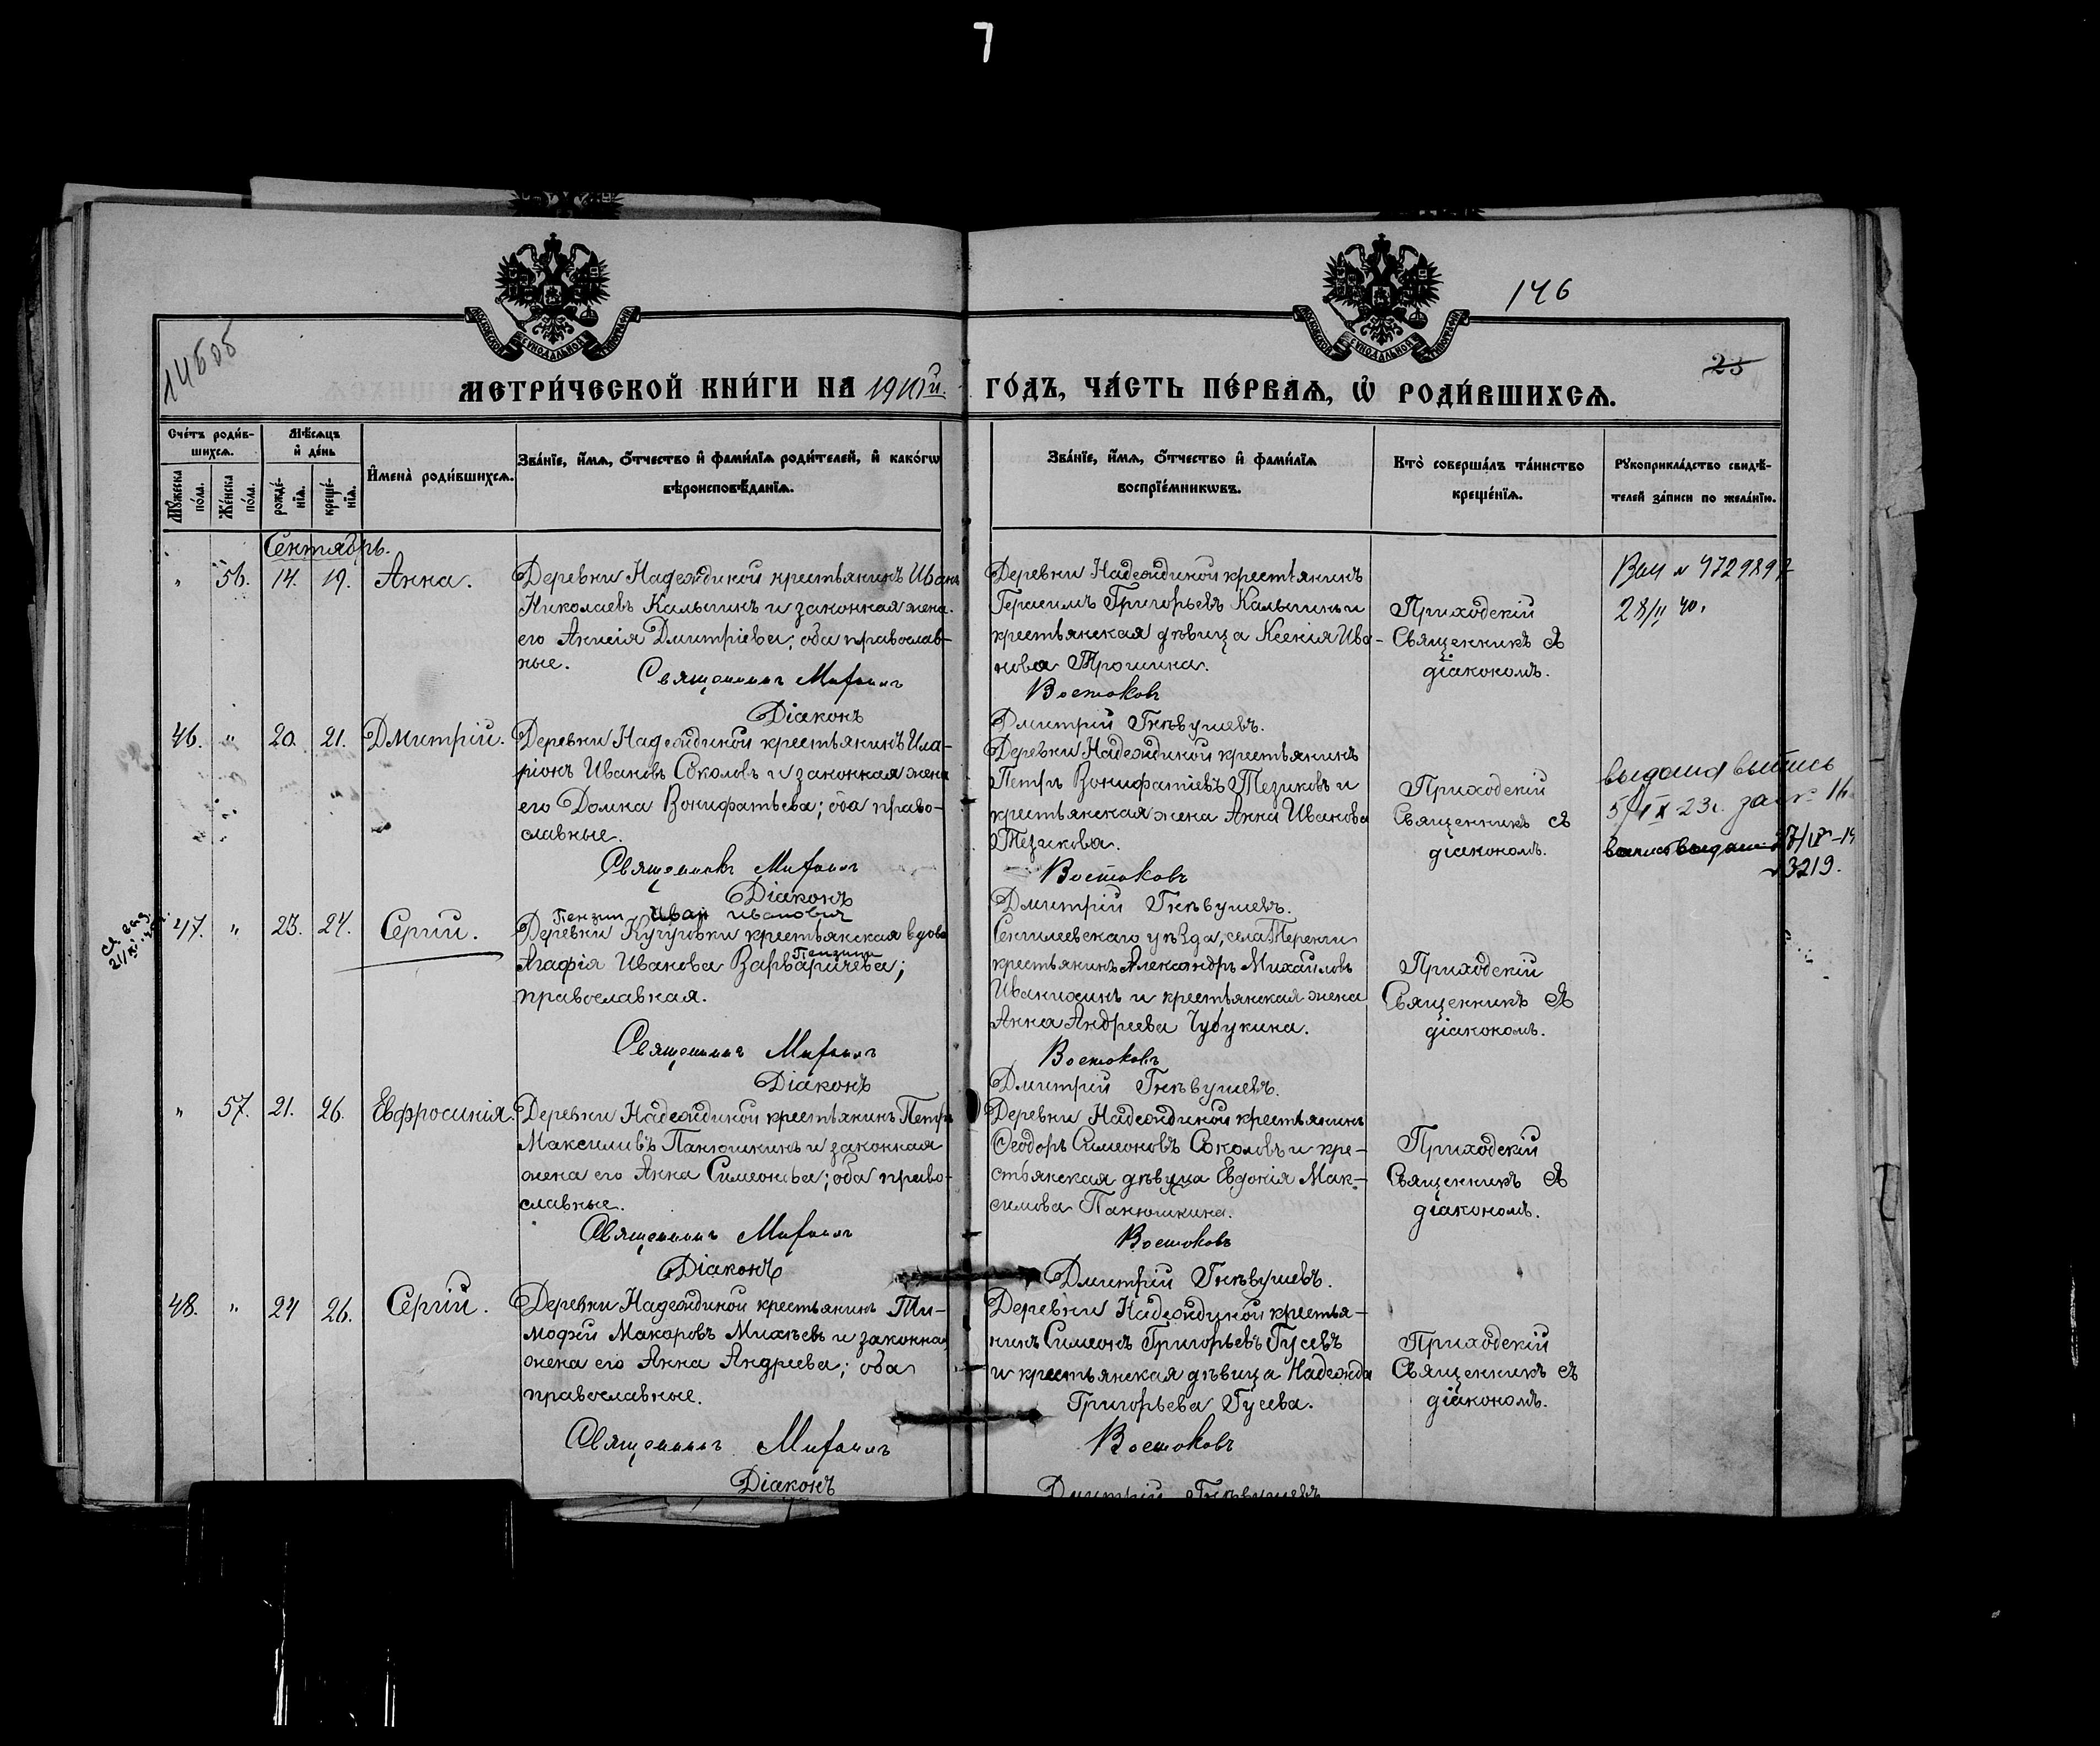 7
146
14505
25
МЕТРИ́ЧЕСКОЙ КНИ́ГИ НА 1901й. ГО́ДЪ, ЧА́СТЬ ПЕ́РВАѦ, Ѡ҆ РОДИ́ВШИХСѦ.
Сче́тъ роди́в-
шихсѧ.
Мѣ́сѧцъ
и҆ де́нь
Мꙋ́жеска по́ла.
Же́нска по́ла.
рожде́-
нїѧ.
креще́-
нїѧ.
И҆мена̀ роди́вшихсѧ.
Зва́нїе, и҆́мѧ, ѻ҆́тчество и҆ фами́лїѧ роди́телей, и҆ како́гѡ
вѣроисповѣ́данїѧ.
Зва́нїе, и҆́мѧ, ѻ҆́тчество и҆ фами́лїѧ
воспрїе́мникѡвъ.
Кто̀ соверша́лъ та́инство
креще́нїѧ.
Рꙋкоприкла́дство свидѣ́-
телей за́писи по жела́нїю.
Сентябрь.
" 56. 14. 19. Анна.
Деревни Надеждиной крестьянинъ Иванъ
Николаевъ Калыгинъ и законная жена
его Анисія Дмитріева; оба православ-
ные.
Священникъ Михаилъ
Діаконъ
Деревни Надеждиной крестьянинъ
Герасимъ Григорьевъ Калыгинъ и
крестьянская дѣвица Ксенія Ива-
нова Трошина.
Востоковъ
Дмитрій Гнѣвушевъ.
Приходскій
Священникъ съ
діакономъ.
28/II 40.
46. " 20. 21. Дмитрій.
Деревни Надеждиной крестьянинъ Ила-
ріонъ Ивановъ Соколовъ и законная жена
его Домна Вонифатьева; оба право-
славные.
Священникъ Михаилъ
Діаконъ
Деревни Надеждиной крестьянинъ
Петръ Вонифатіевъ Тезиковъ и
крестьянская жена Анна Иванова
Тезикова.
Востоковъ
Дмитрій Гнѣвушевъ.
Приходскій
Священникъ съ
діакономъ.
выдана выпись
3219.
47. " 23. 24. Сергій.
Пензин Иван Иванович
Деревни Кучуговки крестьянская вдова
Пензина
Агафія Иванова Варваричева;
православная.
Священникъ Михаилъ
Діаконъ
Сенгилеевскаго уѣзда, села Тереньги
крестьянинъ Александръ Михайловъ
Иванихинъ и крестьянская жена
Анна Андреева Чубукина.
Востоковъ
Дмитрій Гнѣвушевъ.
Приходскій
Священникъ съ
діакономъ.
" 57. 21. 26. Евфросинія.
Деревни Надеждиной крестьянинъ Петръ
Максимивъ Панюшкинъ и законная
жена его Анна Симеонова; оба право-
славные.
Священникъ Михаилъ
Діаконъ
Деревни Надеждиной крестьянинъ
Ѳеодоръ Симеоновъ Соколовъ и кре-
стьянская дѣвица Евдокія Мак-
симова Панюшкина.
Востоковъ
Дмитрій Гнѣвушевъ.
Приходскій
Священникъ съ
діакономъ.
48. " 24 26. Сергій.
Деревни Надеждиной крестьянинъ Ти-
мофей Макаровъ Михѣевъ и законная
жена его Анна Андреева; оба
православные.
Священникъ Михаилъ
Діаконъ
Деревни Надеждиной крестья-
нинъ Симеонъ Григорьевъ Гусевъ
и крестьянская дѣвица Надежда
Григорьева Гусева.
Востоковъ
Дмитрій Гнѣвушевъ
Приходскій
Священникъ съ
діакономъ.